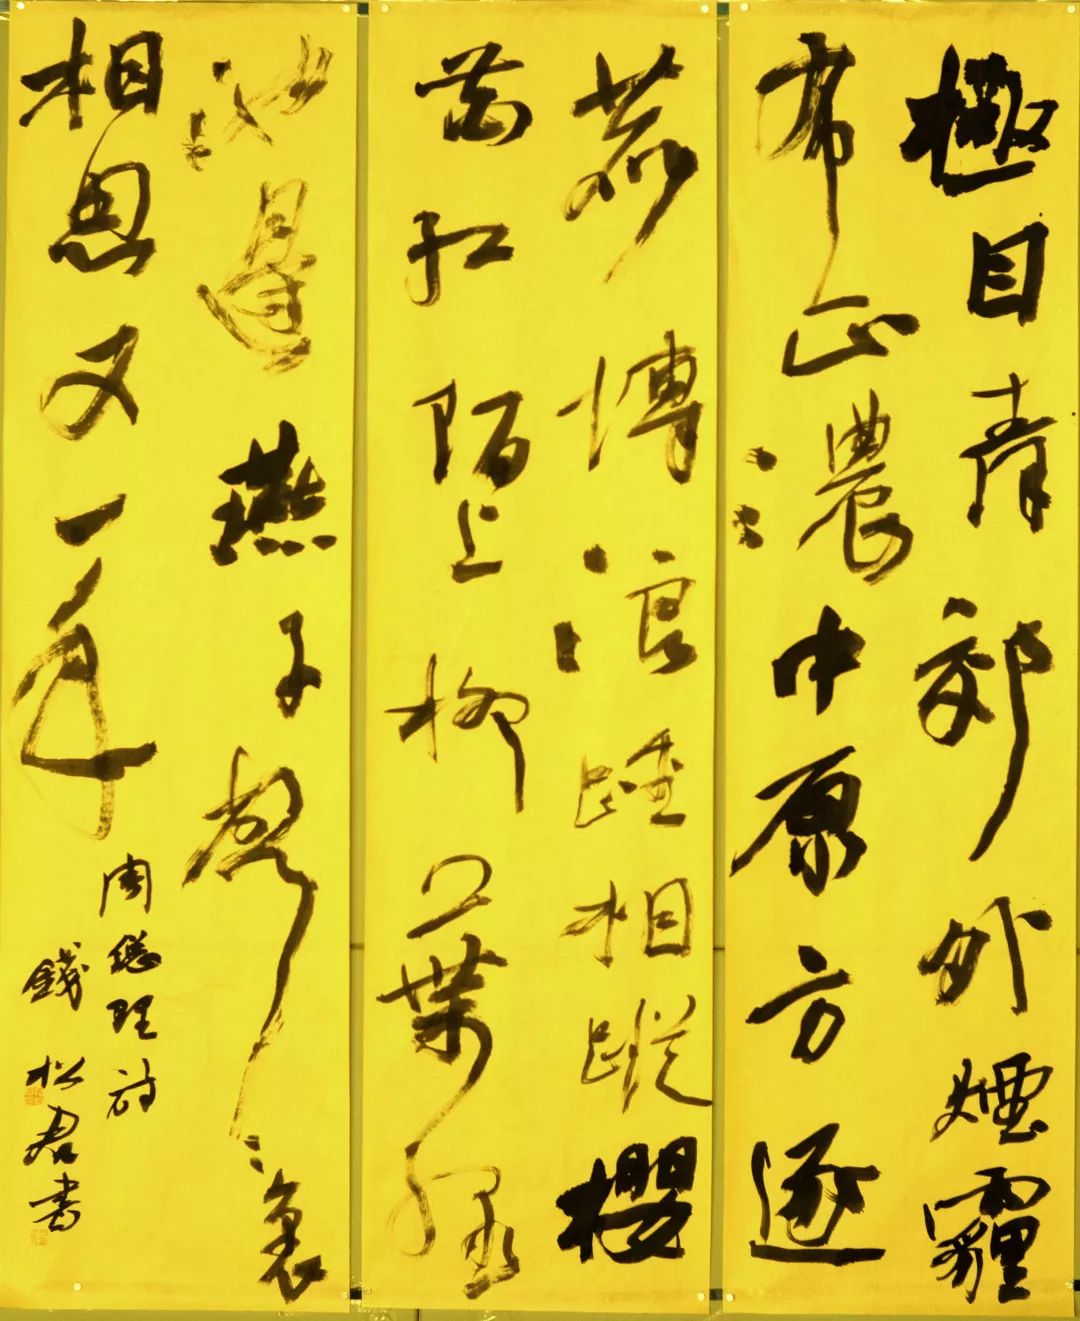 極目青郊外煙霾
布正濃中原方逐
鹿博浪踵相蹤櫻
花紅陌上柳葉綠
池邊燕子聲〻裏
相思又一年
周總理詩
錢松君書